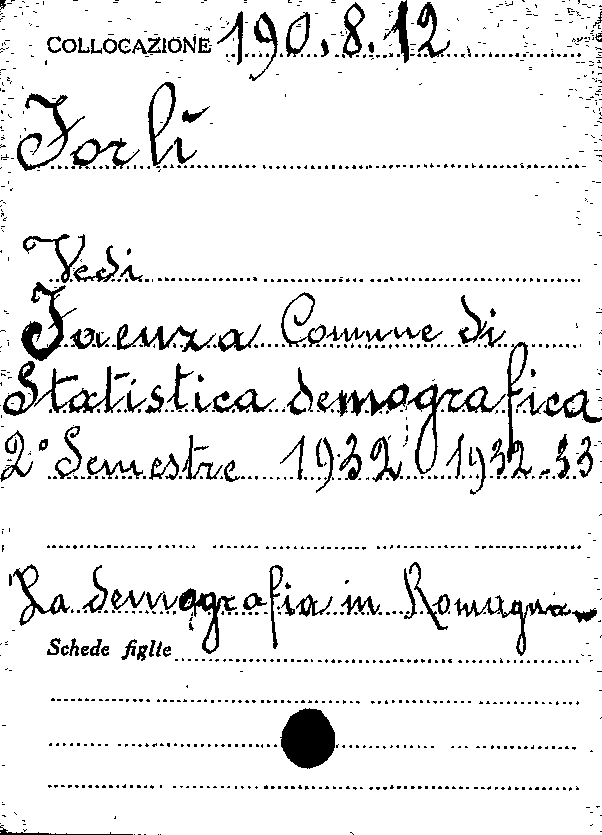 COLLOCAZIONE 190.8.12
Forlì
Vedi
Faenza Comune di
Statistica demografica
2° Semestre 1932 1932-33
La demografia in Romagna
Schede figlie